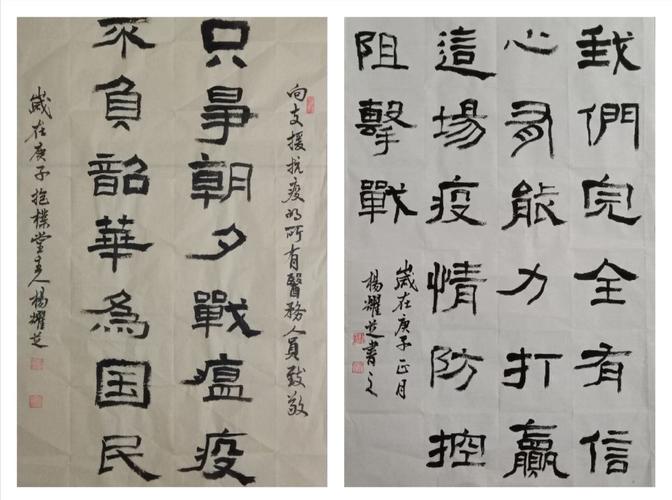 向支援抗疫的所有醫務人員致敬
只爭朝夕戰瘟疫
不負韶華為国民
歲在庚子抱樸堂主人楊耀芝
我們完全有信
心有能力打贏
這場疫情防控
阻擊戰
歲在庚子正月
楊耀芝書之